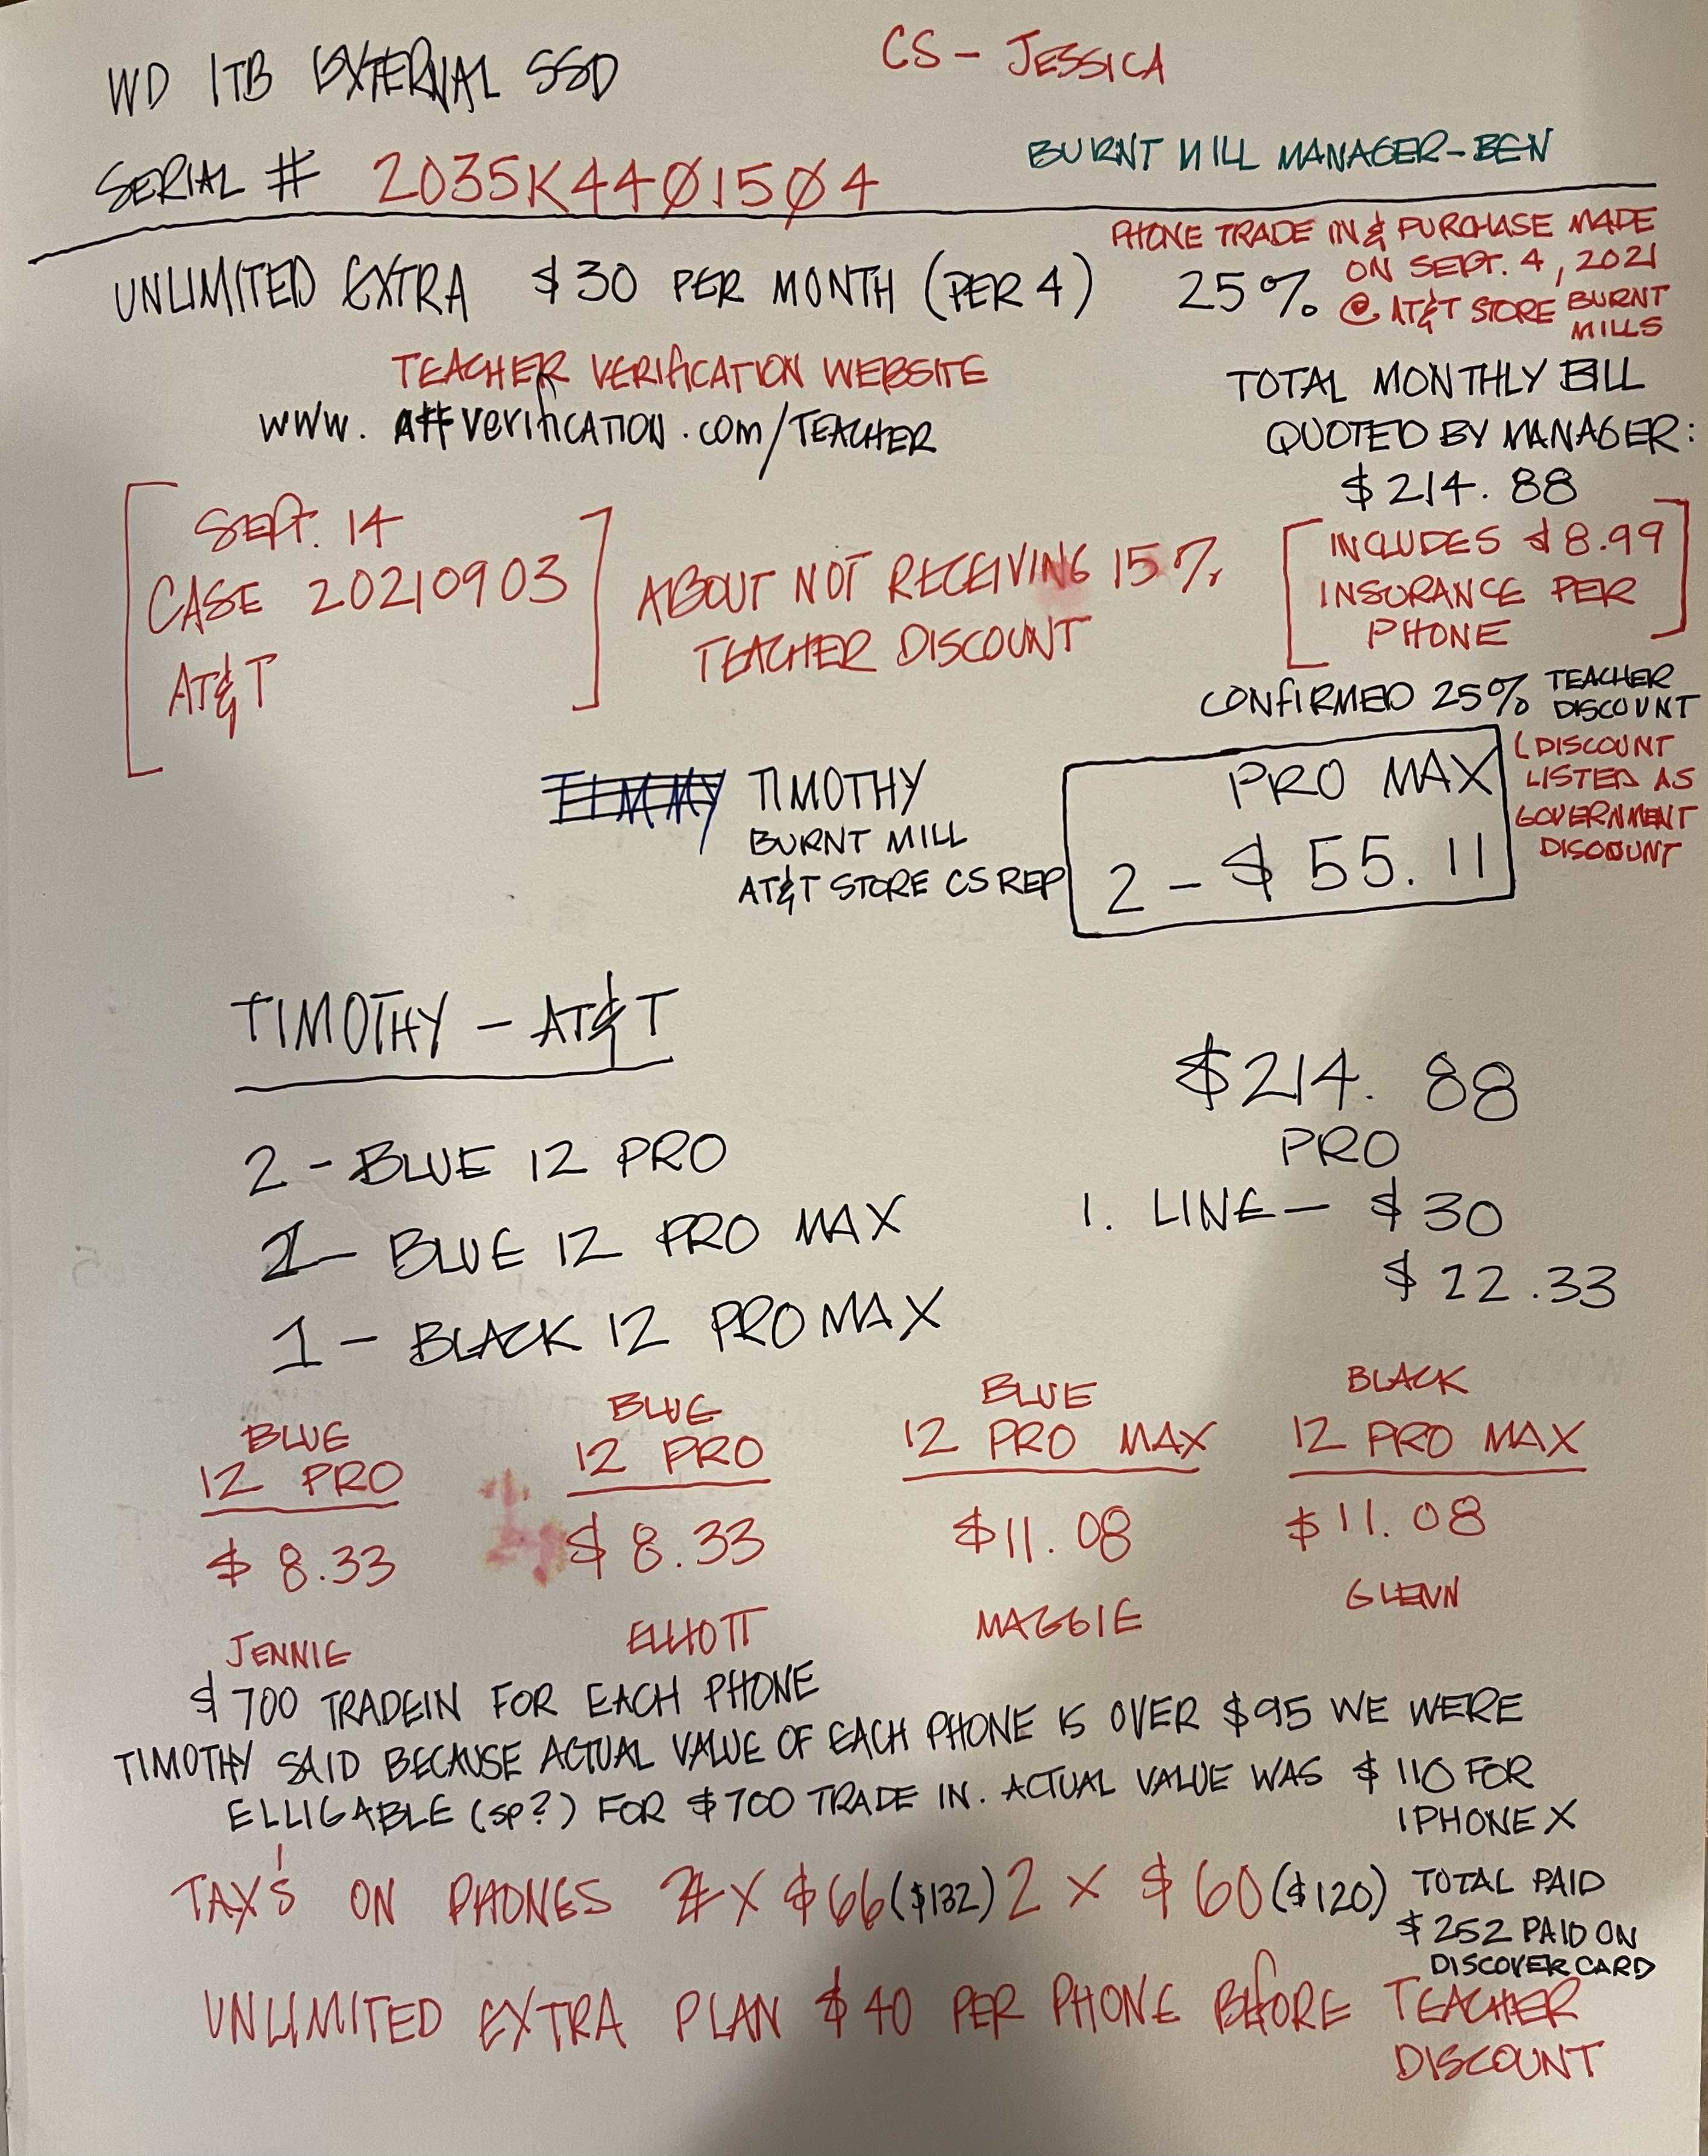 WD 1TB EXTERNAL SSD
CS - JESSICA
BURNT MILL MANAGER - BEN
SERIAL # 2035K44Ø15Ø4
PHONE TRADE IN & PURCHASE MADE
ON SEPT. 4, 2021
@ AT&T STORE BURNT
MILLS
UNLIMITED EXTRA $30 PER MONTH (PER 4) 25%
TEACHER VERIFICATION WEBSITE
www.attverification.com/TEACHER
TOTAL MONTHLY BILL
QUOTED BY MANAGER:
$214.88
[INCLUDES $8.99
INSURANCE PER
PHONE]
[SEPT. 14
CASE 20210903
AT&T]
ABOUT NOT RECEIVING 15%
TEACHER DISCOUNT
CONFIRMED 25% TEACHER
DISCOUNT
(DISCOUNT
LISTED AS
GOVERNMENT
DISCOUNT
TIMMY TIMOTHY
BURNT MILL
AT&T STORE CS REP
PRO MAX
2 - $55.11
TIMOTHY - AT&T
2 - BLUE 12 PRO
1 - BLUE 12 PRO MAX
1 - BLACK 12 PRO MAX
$214.88
PRO
1. LINE - $30
$22.33
BLUE
12 PRO
$8.33
JENNIE
BLUE
12 PRO
$8.33
ELLIOTT
BLUE
12 PRO MAX
$11.08
MAGGIE
BLACK
12 PRO MAX
$11.08
GLENN
$700 TRADEIN FOR EACH PHONE
TIMOTHY SAID BECAUSE ACTUAL VALUE OF EACH PHONE IS OVER $95 WE WERE
ELLIGABLE (SP?) FOR $700 TRADE IN. ACTUAL VALUE WAS $110 FOR
IPHONE X
TAX'S ON PHONES 2 X $66 ($132) 2 X $60 ($120)
TOTAL PAID
$252 PAID ON
DISCOVER CARD
UNLIMITED EXTRA PLAN $40 PER PHONE BEFORE TEACHER
DISCOUNT